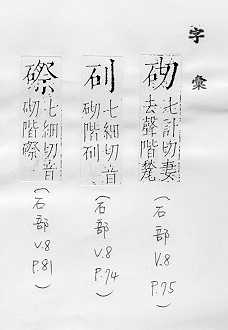 字彙
砌 七計切妻
去聲階甃
(石部 V.8 P.75)
砌 七細切音
砌階砌
(石部 V.8 P.74)
磜 七細切音
砌階磜
(石部 V.8 P.81)